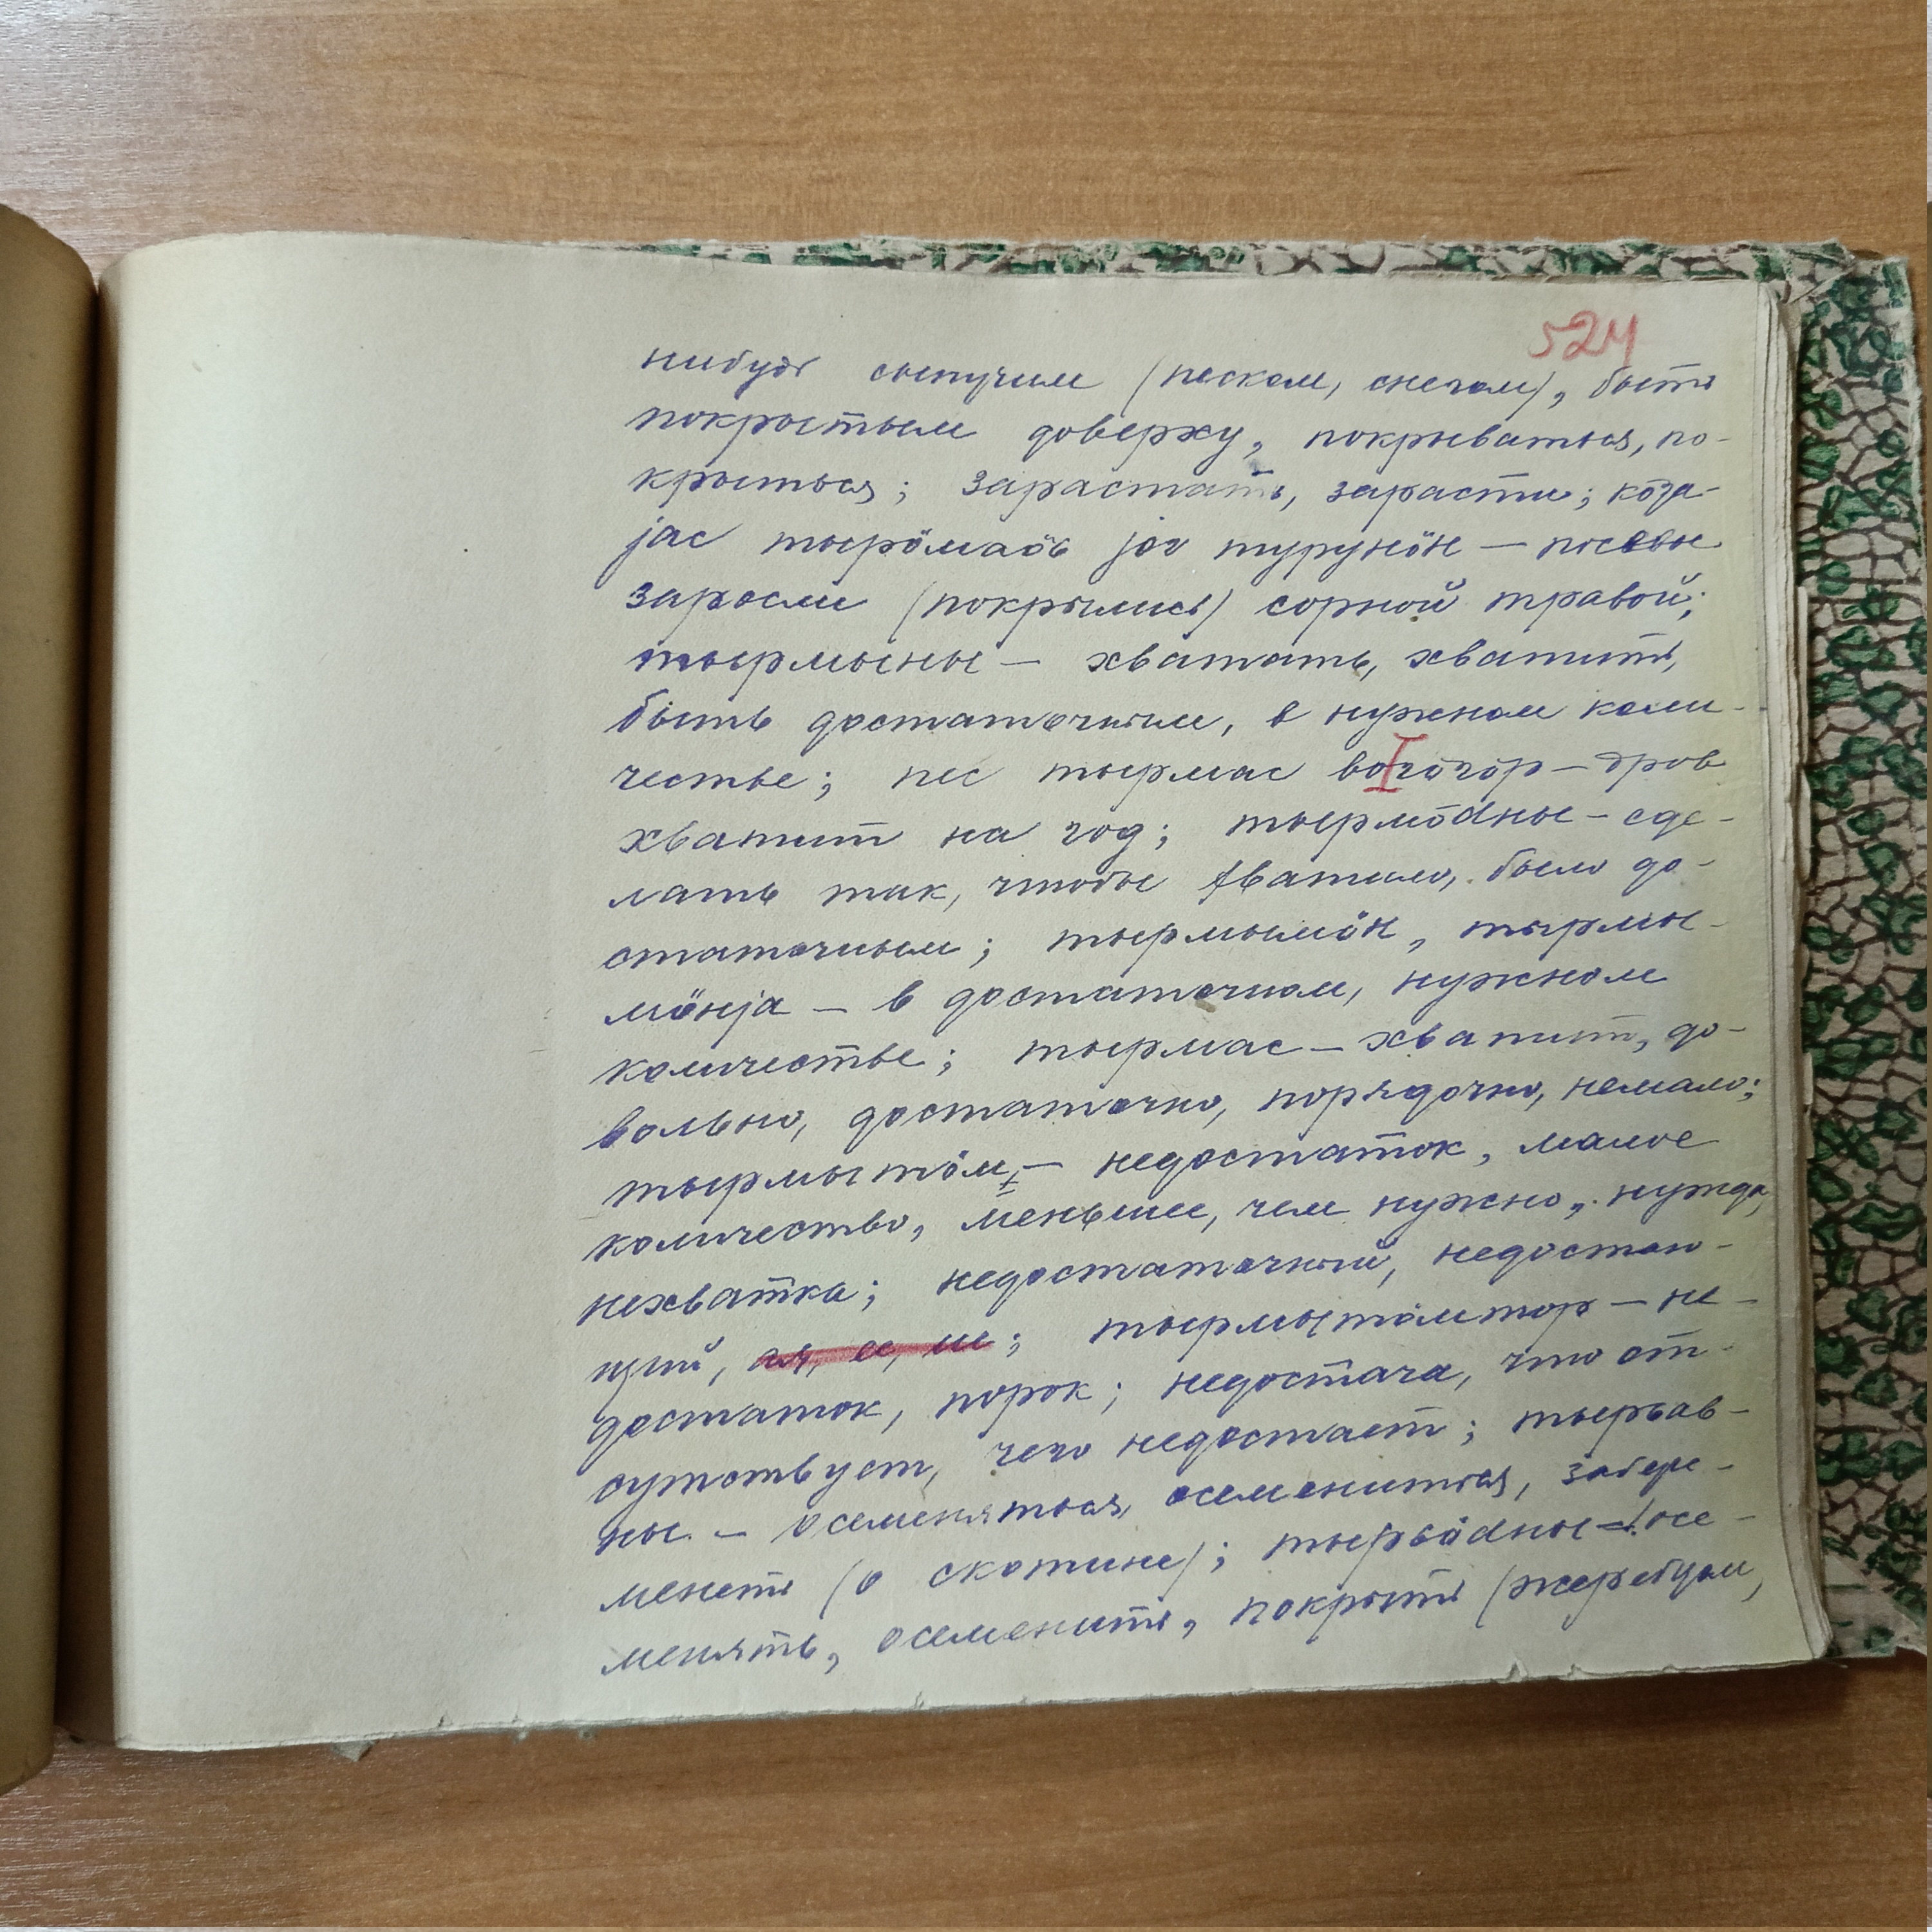 524
нибудь сыпучим (песком, снегом), быть
покрытым доверху, покрываться, по-
крыться; зарастать, зарасти; кӧза-
јас тырӧмаӧс јог турунӧн — посевы
заросли (покрылись) сорной травой;
тырмыны — хватать, хватить,
быть достаточным, в нужном коли-
честве; пес тырмас во гӧгӧр — дров
хватит на год; тырмӧdны — сде-
лать так, чтобы хватило, было до-
статочным; тырмымӧн, тырмы-
мӧнја — в достаточном, нужном
количестве; тырмас — хватит, до-
вольно, достаточно, порядочно, немало;
тырмытӧм, — недостаток, малое
количество, меньшее, чем нужно, нужда,
нехватка; недостаточный, недостаю-
щий, ая, ее, ие; тырмытӧмтор — не-
достаток, порок; недостача, что от-
сутствует, чего недостает; тырсав-
ны — осеменяться, осемениться, забере-
менеть (о скотине); тырсӧdны — осе-
менять, осеменить, покрыть (жеребцом,